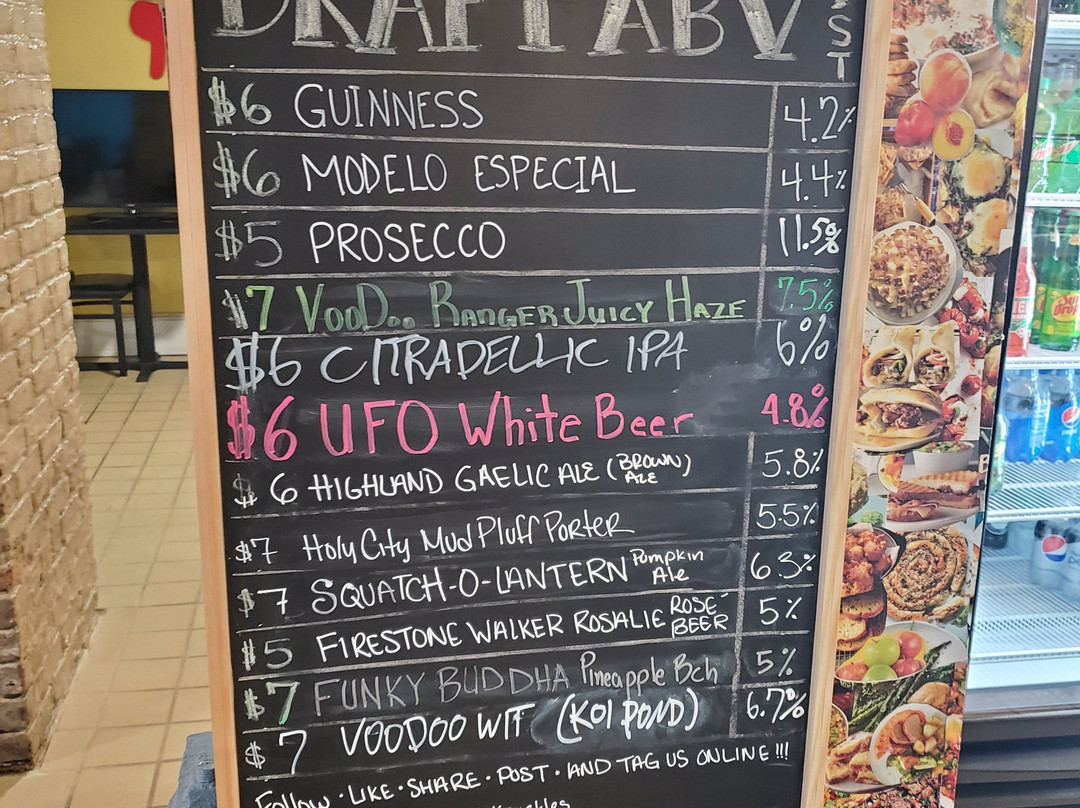 DRAFT ABV
LIST
$6 GUINNESS 4.2%
$6 MODELO ESPECIAL 4.4%
$5 PROSECCO 11.5%
$7 VOODOO RANGER JUICY HAZE 7.5%
$6 CITRADELLIC IPA 6%
$6 UFO White Beer 4.8%
$6 HIGHLAND GAELIC ALE (BROWN ALE) 5.8%
$7 Holy City Mud Pluff Porter 5.5%
$7 SQUATCH-O-LANTERN Pumpkin Ale 6.3%
$5 FIRESTONE WALKER ROSALIE ROSÉ BEER 5%
$7 FUNKY BUDDHA Pineapple Bch 5%
$7 VOODOO WIT (KOI POND) 6.7%
Follow · LIKE · SHARE · POST · AND TAG US ONLINE!!!
pepsi